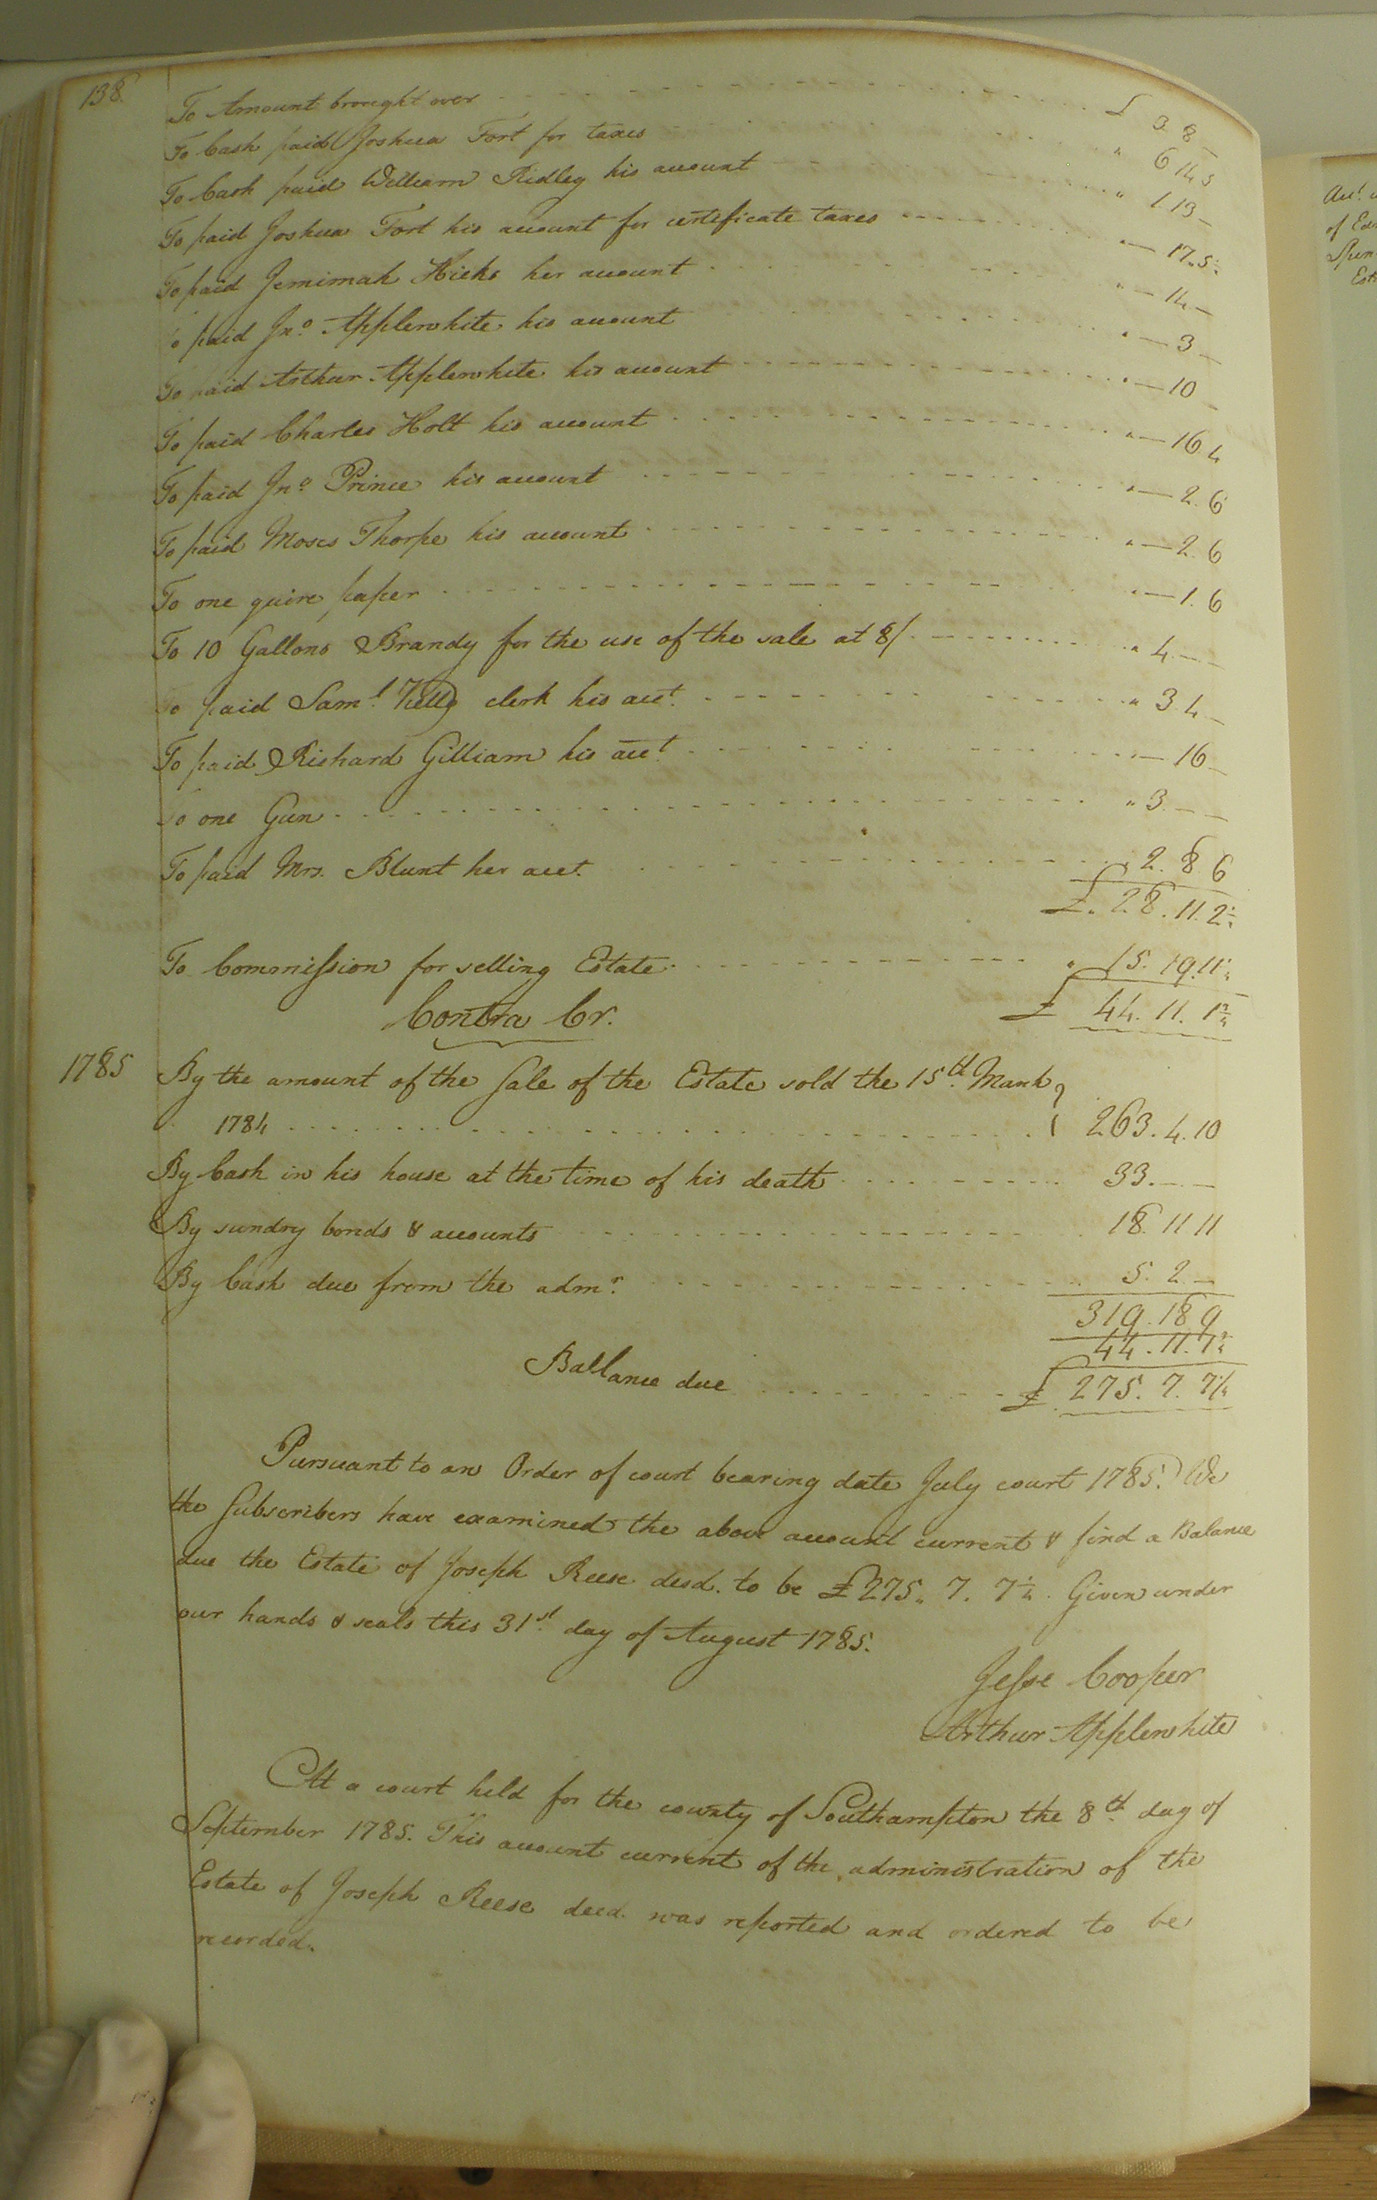 138.
To Amount brought over £ 3. 8 —
To Cash paid Joshua Fort for taxes " 6 14 5
To Cash paid William Ridley his account " 1 13 —
To paid Joshua Fort his account for certificate taxes " — 17. 5½
To paid Jemimah Hicks her account " — 14 —
To paid Jno. Applewhite his account " — 3 —
To paid Arthur Applewhite his account " — 10 —
To paid Charles Holt his account " — 16. 4
To paid Jno. Prince his account " — 2. 6
To paid Moses Thorpe his account " — 2. 6
To one quire paper " — 1. 6
To 10 Gallons Brandy for the use of the sale at 8/ " 4. — —
To paid Saml. Kello clerk his acct. " 3. 4 —
To paid Richard Gilliam his acct. " — 16 —
To one Gun " 3. — —
To paid Mrs. Blunt her acct. " 2. 8 6
£. 28. 11. 2½
To Commission for selling Estate " 15. 19. 11
£ 44. 11. 1
Contra Cr.
1785 By the amount of the Sale of the Estate sold the 15th. March
1784 263. 4. 10
By Cash in his house at the time of his death 33. — —
By sundry bonds & accounts 18. 11 11
By Cash due from the admr. 5. 2 —
319. 18 9
44. 11. 1
Ballance due £ 275. 7. 7¼
Pursuant to an Order of court bearing date July court 1785. We
the Subscribers have examined the above account current & find a Balance
due the Estate of Joseph Reese decd. to be £275. 7. 7¼. Given under
our hands & seals this 31st. day of August 1785.
Jesse Cooper
Arthur Applewhite
At a court held for the county of Southampton the 8th. day of
September 1785. This account current of the administration of the
Estate of Joseph Reese decd. was reported and ordered to be
recorded.
Acct.
of